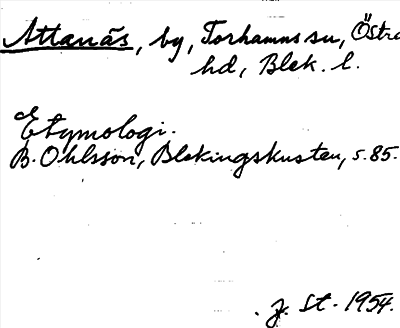 Attanäs, by, Torhamns sn, Östra
hd, Blek. l.
Etymologi.
B. Ohlsson, Blekingskusten, s. 85.
J. St. 1954.